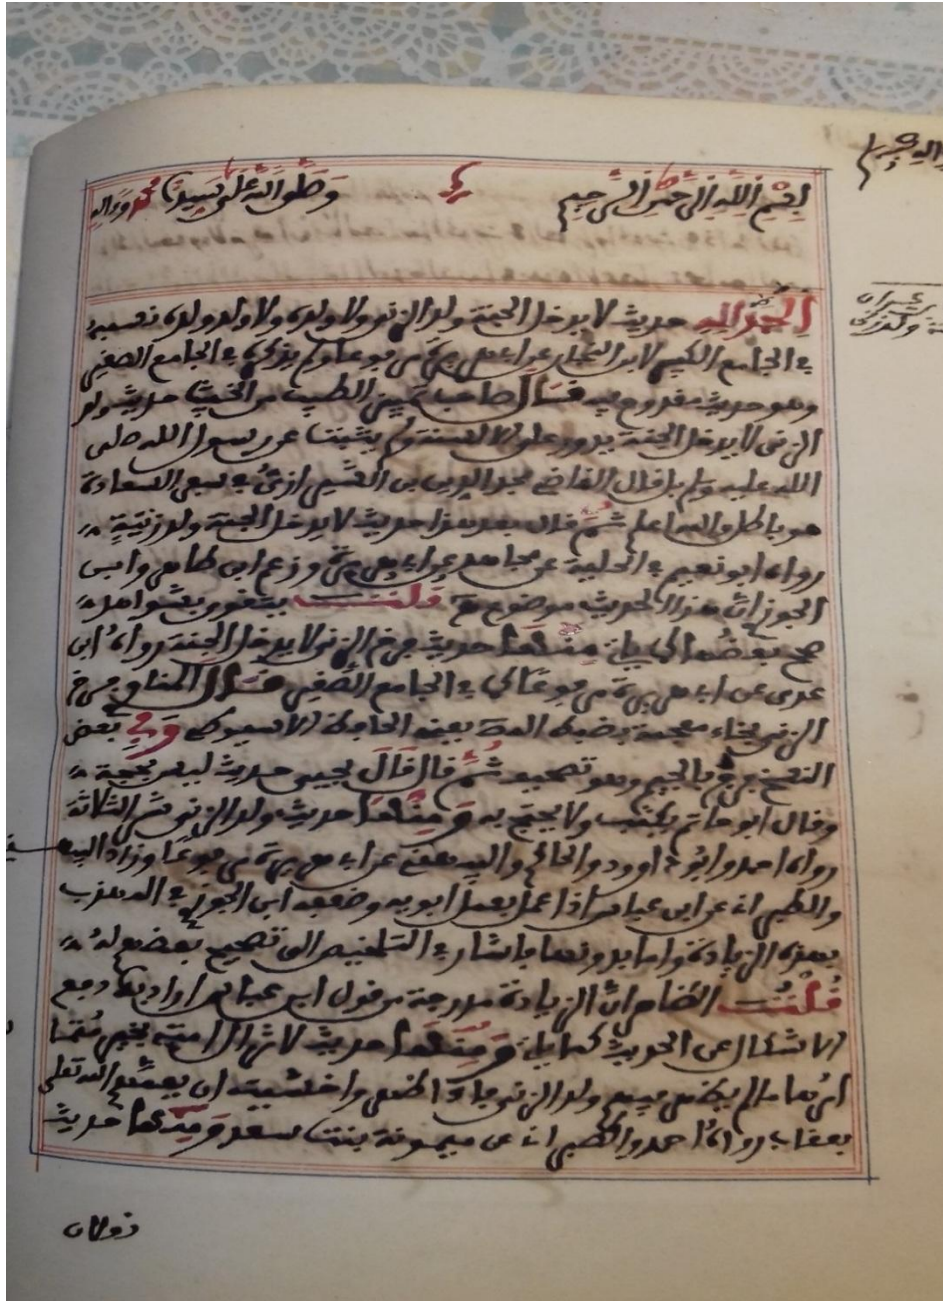 بسم الله الرحمن الرحيم وصلى الله على سيدنا محمد وءاله
الحمد لله حديث لا يدخل الجنة ولد الزنى ولا ولده ولا ولد ولده نسبه
في الجامع الكبير لابن النجار عن ابي هريرة مرفوعا ولم يذكره في الجامع الصغير
وهو حديث مقدوح فيه فقال صاحب تمييز الطيب من الخبيث حديث ولد
الزنى لا يدخل الجنة يدور على الالسنة ولم يثبت عن رسول الله صلى
الله عليه وسلم بل قال القاضي مجد الدين الشيرازي في سفر السعادة
هو باطل والله اعلم ثم قال بعد هذا حديث لا يدخل الجنة ولد زنية
رواه ابو نعيم في الحلية عن مجاهد عن ابي هريرة وزعم ابن طاهر وابن
الجوزي ان هذا الحديث موضوع قلت يتقوى بشواهد
صح بعضها كما ياتي منها حديث فرخ الزنى لا يدخل الجنة رواه ابن
عدي عن ابي هريرة مرفوعا كما في الجامع الصغير فقال المناوي فرخ
الزنى بخاء معجمة بضبط المص يعني الحافظ الاسيوطي وفي بعض
النسخ فرج بالجيم وهو تصحيف ثم قال قال يحيى حديث ليس بحجة
وقال ابو حاتم يكتب ولا يحتج به ومنها حديث ولد الزنى شر الثلاثة
رواه احمد وابو داوود والحاكم والبيهقي عن ابي هريرة مرفوعا وزاد البيهقي
والطبراني عن ابن عباس اذا عمل بعمل ابويه وضعفه ابن الجوزي المهذب
بهذه الزيادة واما بدونها فاشار في التلخيص الى تصحيح بعضهم له
قلت الظاهر ان الزيادة مدرجة من قول ابن عباس اراد بها دفع
الاشكال عن الحديث كما ياتي ومنها حديث لا تزال امتي بخير متمسا
امرها ما لم يظهر فيهم ولد الزنى فاذا ظهر واخشيت ان يعمهم الله تعلى
بعقاب رواه احمد والطبراني عن ميمونة بنت سعد ومنها حديث